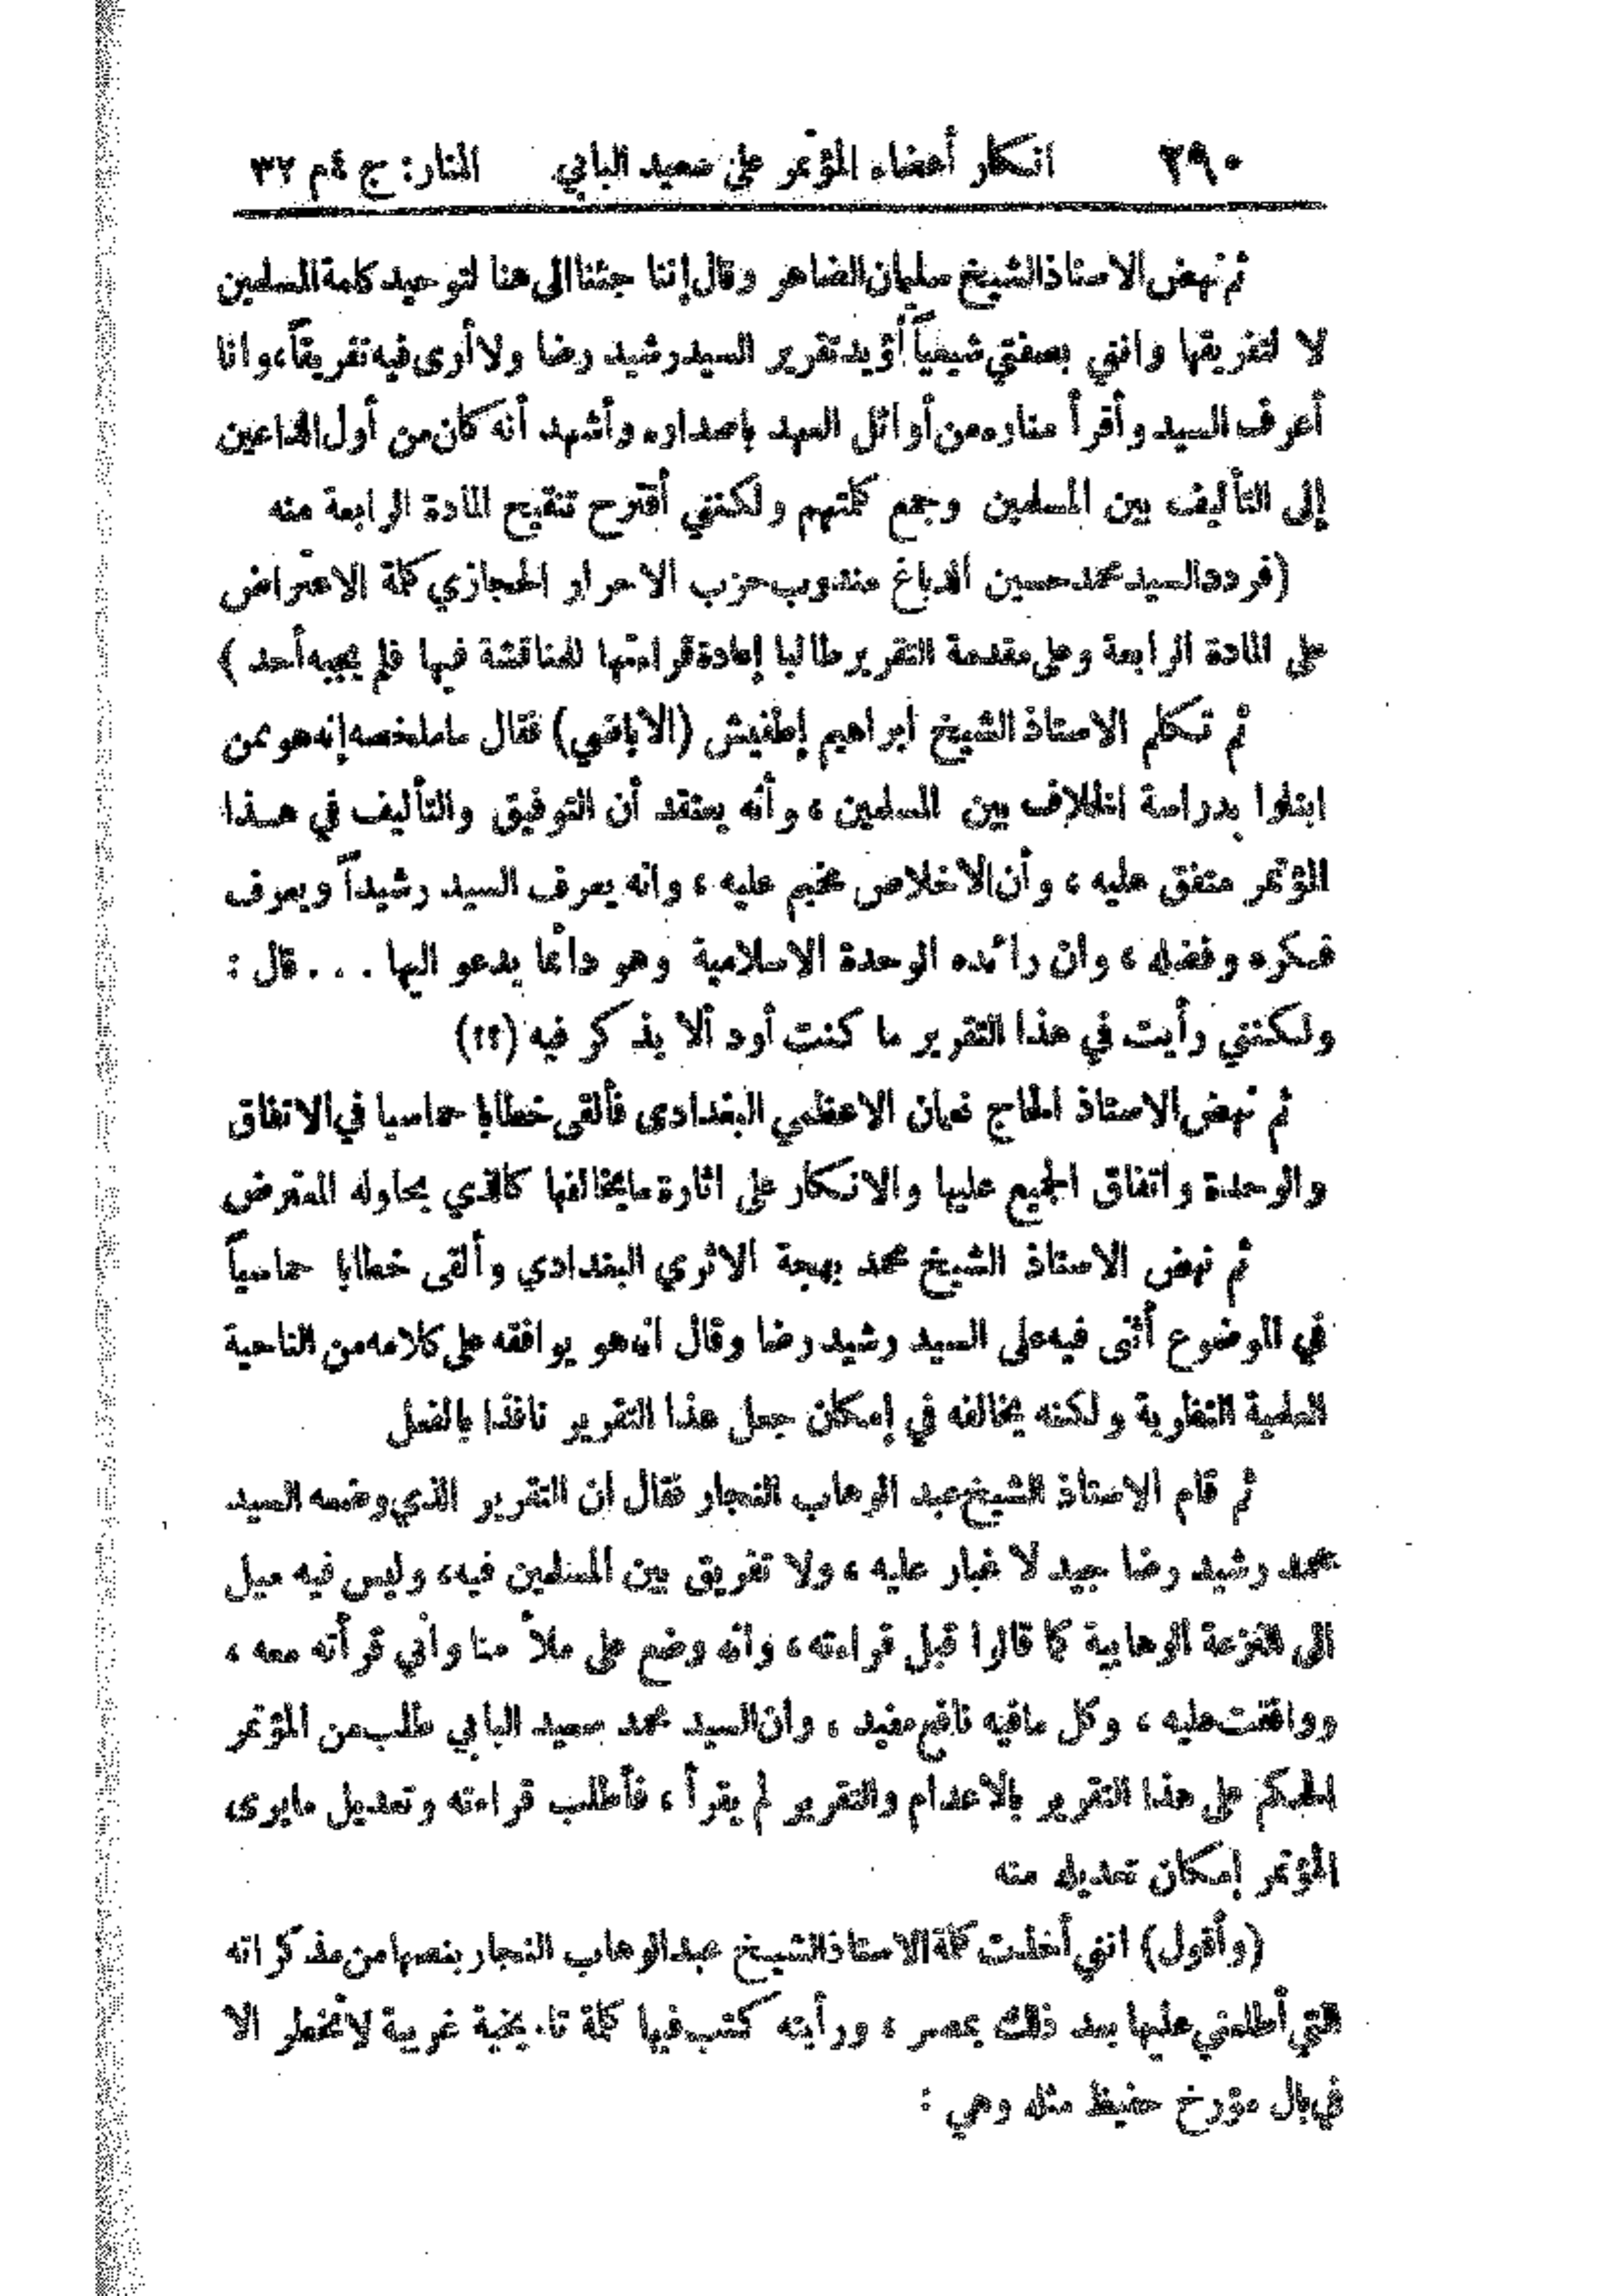 ٢٩٠ انكار أعضاء المؤتمر على سعيد الباني المنار: ج ٤ م ٣٢
ثم نهض الاستاذ الشيخ سليمان الضاهر وقال إننا جئنا الى هنا لتوحيد كلمة المسلمين
لا لتفريقها وانني بصفتي شيعياً أؤيد تقرير السيد رشيد رضا ولا أرى فيه تفريقاً، وانا
أعرف السيد وأقرأ مناره من أوائل العهد بإصداره وأشهد أنه كان من أول الداعين
إلى التأليف بين المسلمين وجمع كلمتهم ولكنني أقترح تنقيح المادة الرابعة منه
(فردد السيد محمد حسين الدباغ مندوب حزب الاحرار الحجازي كلمة الاعتراض
على المادة الرابعة وعلى مقدمة التقرير طالبا إعادة قراءتها للمناقشة فيها فلم يجبه أحد)
ثم تكلم الاستاذ الشيخ ابراهيم إطفيش (الاباضي) فقال ما ملخصه إنه هو ممن
ابتلوا بدراسة الخلاف بين المسلمين ، وأنه يعتقد أن التوفيق والتأليف في هذا
المؤتمر متفق عليه ، وأن الاخلاص مخيم عليه ، وانه يعرف السيد رشيداً ويعرف
فكره وفضله ، وان رائده الوحدة الاسلامية وهو دائما يدعو اليها . . . قال :
ولكنني رأيت في هذا التقرير ما كنت أود ألا يذكر فيه (؟؟)
ثم نهض الاستاذ الحاج نعمان الاعظمي البغدادى فألقى خطابا حماسيا في الاتفاق
والوحدة واتفاق الجميع عليها والانكار على اثارة ما يخالفها كالذي يحاوله المعترض
ثم نهض الاستاذ الشيخ محمد بهجة الاثري البغدادي وألقى خطابا حماسياً
في الموضوع أثنى فيه على السيد رشيد رضا وقال انه هو يوافقه على كلامه من الناحية
العلمية النظرية ولكنه يخالفه في إمكان جعل هذا التقرير نافذا بالفعل
ثم قام الاستاذ الشيخ عبد الوهاب النجار فقال ان التقرير الذي وضعه السيد
محمد رشيد رضا جيد لا غبار عليه ، ولا تفريق بين المسلمين فيه، وليس فيه ميل
الى النزعة الوهابية كما قالوا قبل قراءته، وانه وضع على ملأ منا وأني قرأته معه ،
ووافقت عليه ، وكل ما فيه نافع مفيد ، وان السيد محمد سعيد الباني طلب من المؤتمر
الحكم على هذا التقرير بالاعدام والتقرير لم يقرأ ، فأطلب قراءته وتعديل ما يرى
المؤتمر إمكان تعديله منه
(وأقول) انني أخذت كلمة الاستاذ الشيخ عبد الوهاب النجار بنصها من مذكراته
التي أطلعني عليها بعد ذلك بمصر ، ورأيته كتب فيها كلمة تاريخية غريبة لا تخطر الا
في بال مؤرخ حفيظ مثله وهي :